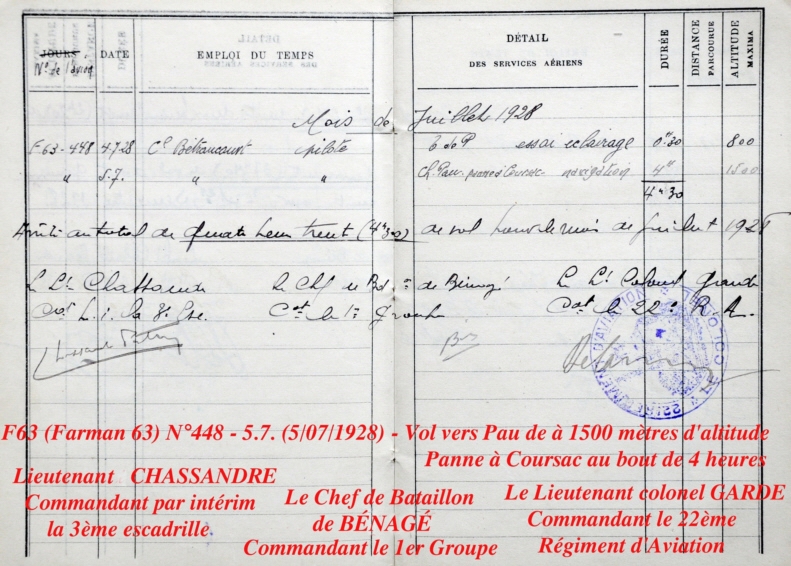 JOURS
N° de l'avion
DATE
EMPLOI DU TEMPS
DÉTAIL
DES SERVICES AÉRIENS
DURÉE
DISTANCE
PARCOURUE
ALTITUDE
MAXIMA
Mois de Juillet 1928
F63-448 4.7.28 Cl Bétrancourt pilote T de P essai eclairage 0h30 800
" 5.7. " " Ch. Pau- panne à Coursac- navigation 4h 1500
4h30
Arrêté au total de quatre heures trente (4h30) de vol pour le mois de Juillet 1928
Le Lt Chassande Le Chef de Bat. de Bénagé Le Lt Colonel Garde
Cdt p. i. la 3e Esc. Cdt le 1er Groupe Cdt le 22e R. A.
F63 (Farman 63) N°448 - 5.7. (5/07/1928) - Vol vers Pau de à 1500 mètres d'altitude
Panne à Coursac au bout de 4 heures
Lieutenant CHASSANDRE
Commandant par intérim
la 3ème escadrille
Le Chef de Bataillon
de BÉNAGÉ
Commandant le 1er Groupe
Le Lieutenant colonel GARDE
Commandant le 22ème
Régiment d'Aviation